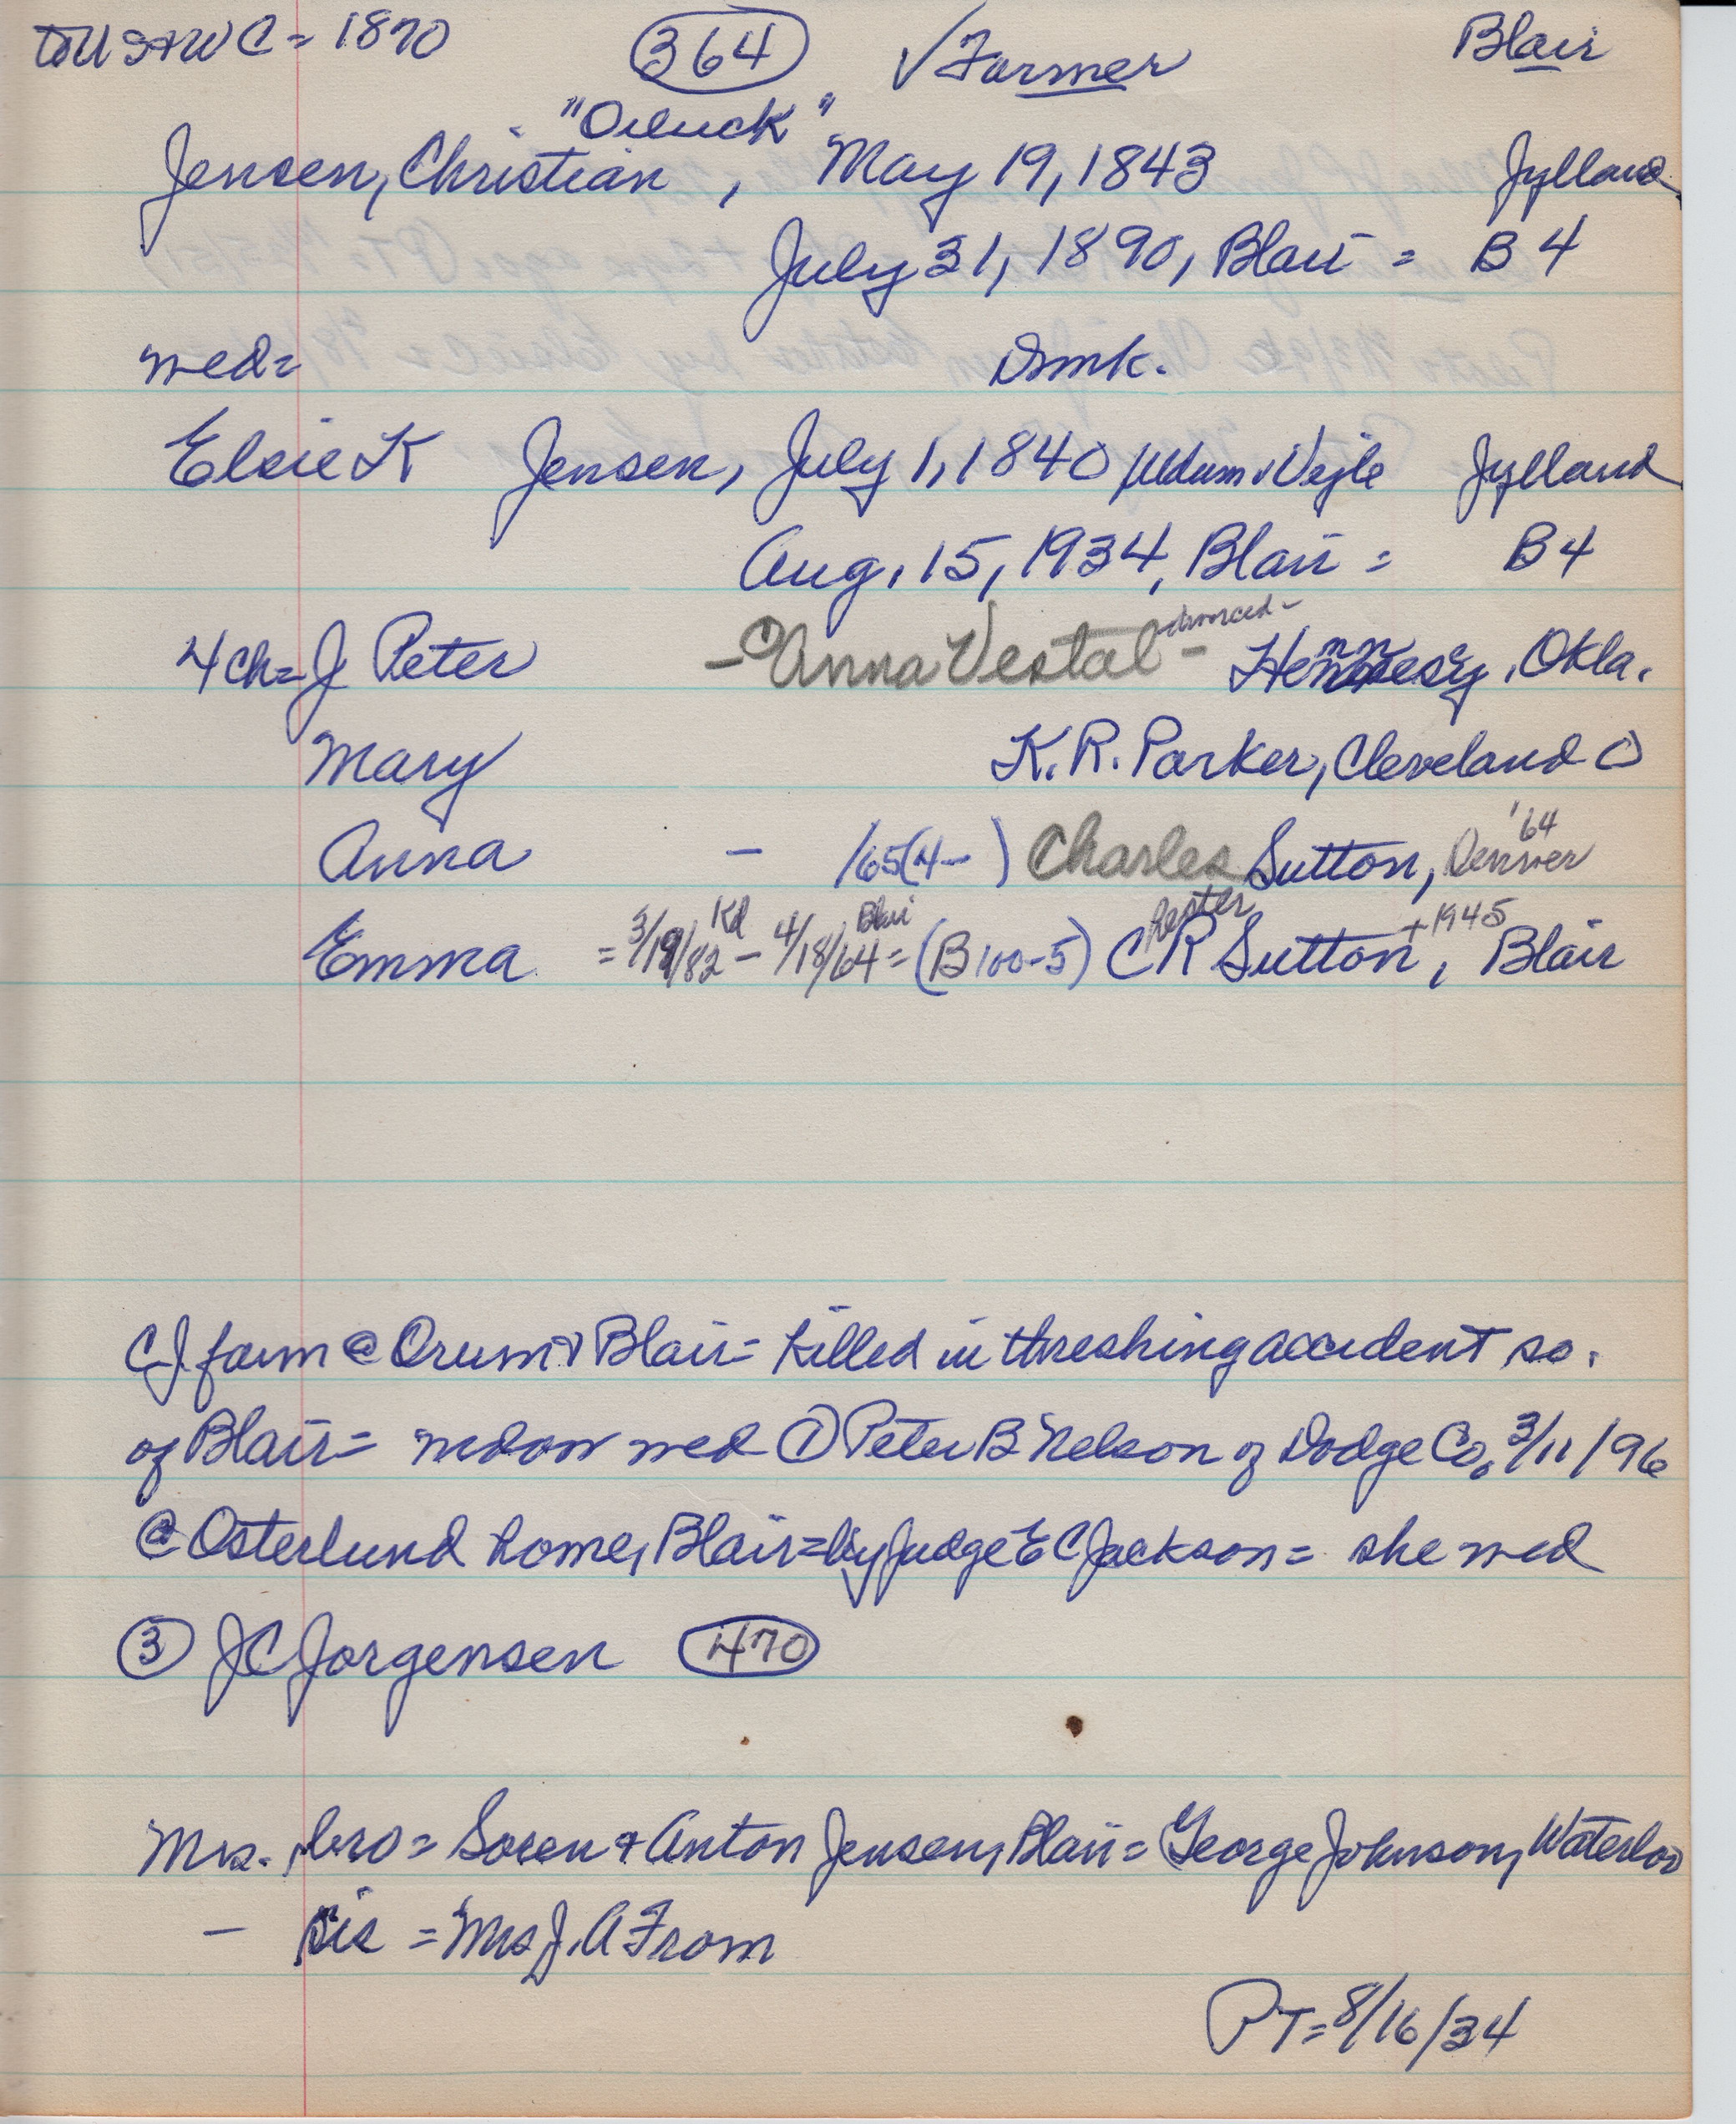 to US & WC = 1870 (364) √ Farmer Blair
Jensen, Christian, May 19, 1843 Jylland
July 31, 1890, Blair = B 4
wed = Dmk.
Elsie K Jensen, July 1, 1840 Uldum, Vejle Jylland
Aug. 15, 1934, Blair = B 4
4 ch = J Peter — Anna Vestal - divorced - Hennesey, Okla.
Mary K. R. Parker, Cleveland O
Anna - 165 (4- ) Charles Sutton, Denver '64
Emma = 3/19/82 Kd - 4/18/64 Blair = (B 100-5) Chester R Sutton + 1945, Blair
CJ farm @ Orum & Blair = killed in threshing accident so.
of Blair = widow wed Peter B Nelson of Dodge Co. 3/11/96
@ Osterlund home, Blair = by Judge E C Jackson = she wed
(3) J C Jorgensen (470)
Mrs. bro = Soren & Anton Jensen, Blair = George Johnson, Waterloo
- sis = Mrs J. A From
PT = 8/16/34